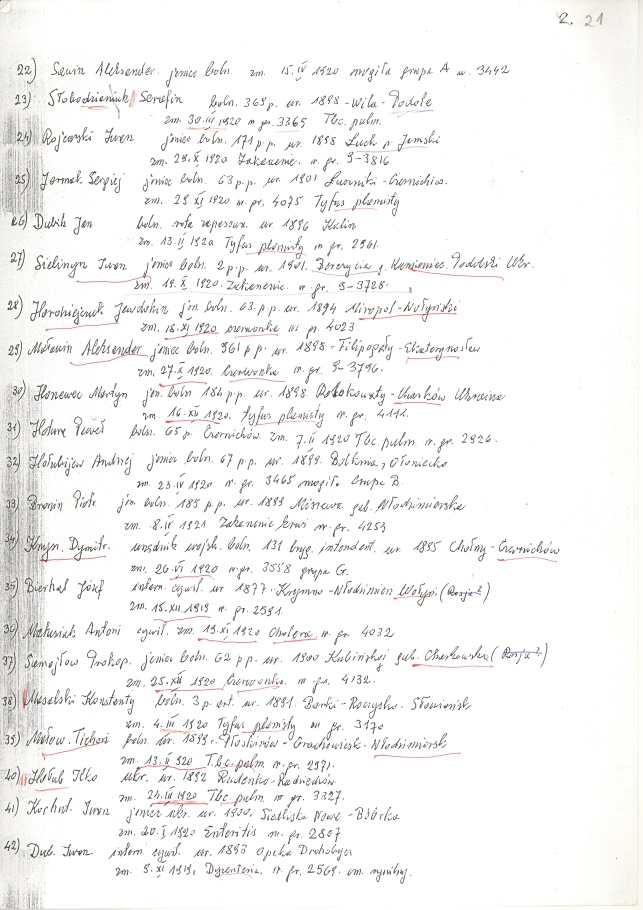 2. 21
22) Sawin Aleksander. jeniec boln. zm. 15.IV 1920 mogiła grupa A nr. 3442
23) Słobodzieniuk Serafin boln. 369 p. ur. 1898 - Wila - Podole
zm. 30.III 1920 nr gr. 3365 Tbc. pulm.
24) Rojewski Iwan jeniec boln. 171 p.p. ur. 1898
zm. 29.X 1920 Zakażenie. nr gr. 9-3816
25) Sergiej jeniec boln. 63 p.p. ur. 1901 - Czernichów.
zm. 29.XI 1920 nr. gr. 4075 Tyfus plamisty
26) Dubik Jan boln. rota zapasowa ur 1896 Kalin
zm. 13.II 1920 Tyfus plamisty nr gr. 2961.
27) Sielinyn Iwan jeniec boln. 2 p.p. ur. 1901. g. Kamieniec Podolski Ukr.
zm. 19.X 1920. Zakażenie. nr gr. 9-3728.
28) Jewdokin jen. boln. 63. p.p. ur. 1894 Miropol - Wołyński
zm. 18.XI 1920 czerwonka nr gr. 4023
29) Aleksander jeniec boln. 361 p.p. ur. 1898 - Filipopoły - Ekaterynosław
zm. 27.X 1920. Czerwonka nr gr. 9-3796.
30) Honewec Martyn jen. boln. 184 p.p. ur. 1898 - Charków Ukraina
zm. 16.XII 1920. Tyfus plamisty nr gr. 4111.
31) Paweł boln. 65 p. Czernichów zm. 7.II 1920 Tbc pulm. nr gr. 2926.
32) Hołubijew Andrej jeniec boln. 67 p.p. ur. 1899. Ołoniecko
zm. 23.IV 1920 nr gr. 3465 mogiła Grupa B.
33) Bronin Piotr jen. boln. 185 p.p. ur. 1899 gub. Włodzimierska
zm. 8.IV 1921 Zakażenie krwi nr gr. 4253
34) Kmyn. Dymitr. urzędnik wojsk. boln. 131 bryg. intendent. ur. 1895 Chołny - Czernichów
zm. 26.VI 1920 nr gr. 3558 grupa G.
35) Bierhal Józef intern. cywil. ur 1877. Krymno - Włodzimierz Wołyń. (Rosja?)
zm. 15.XII.1919 nr. gr. 2591.
36) Matusiak Antoni cywil. zm. 19.XI 1920 Cholera nr gr. 4032
37) Samojłow Prokop. jeniec boln. 62 p.p. ur. 1900 gub. Charkowska (Rosja?)
zm. 25.XII 1920 Czerwonka. nr gr. 4132.
38) Masalski Konstanty boln. 3 p. art. ur. 1891. Borki -
zm. 4.III 1920 Tyfus plamisty nr gr 3170
39) Małow. Tichon boln. ur. 1899. -
zm. 13.II 920 Tbc. pulm nr gr. 2971.
40) Hołub Ilko ukr. ur. 1892 Rudenko - Radziechów.
zm. 24.III 1920 Tbc. pulm nr gr. 3327.
41) Kochut Iwan jeniec ukr. ur. 1900. Siedliska Nowe - Bóbrka
zm. 20.I 1920 Enteritis nr gr. 2807
42) Dub. Iwan. intern. cywil. ur. 1893 Opaka Drohobycz
zm. 9.XI 1919. Dyzenteria. nr gr. 2569